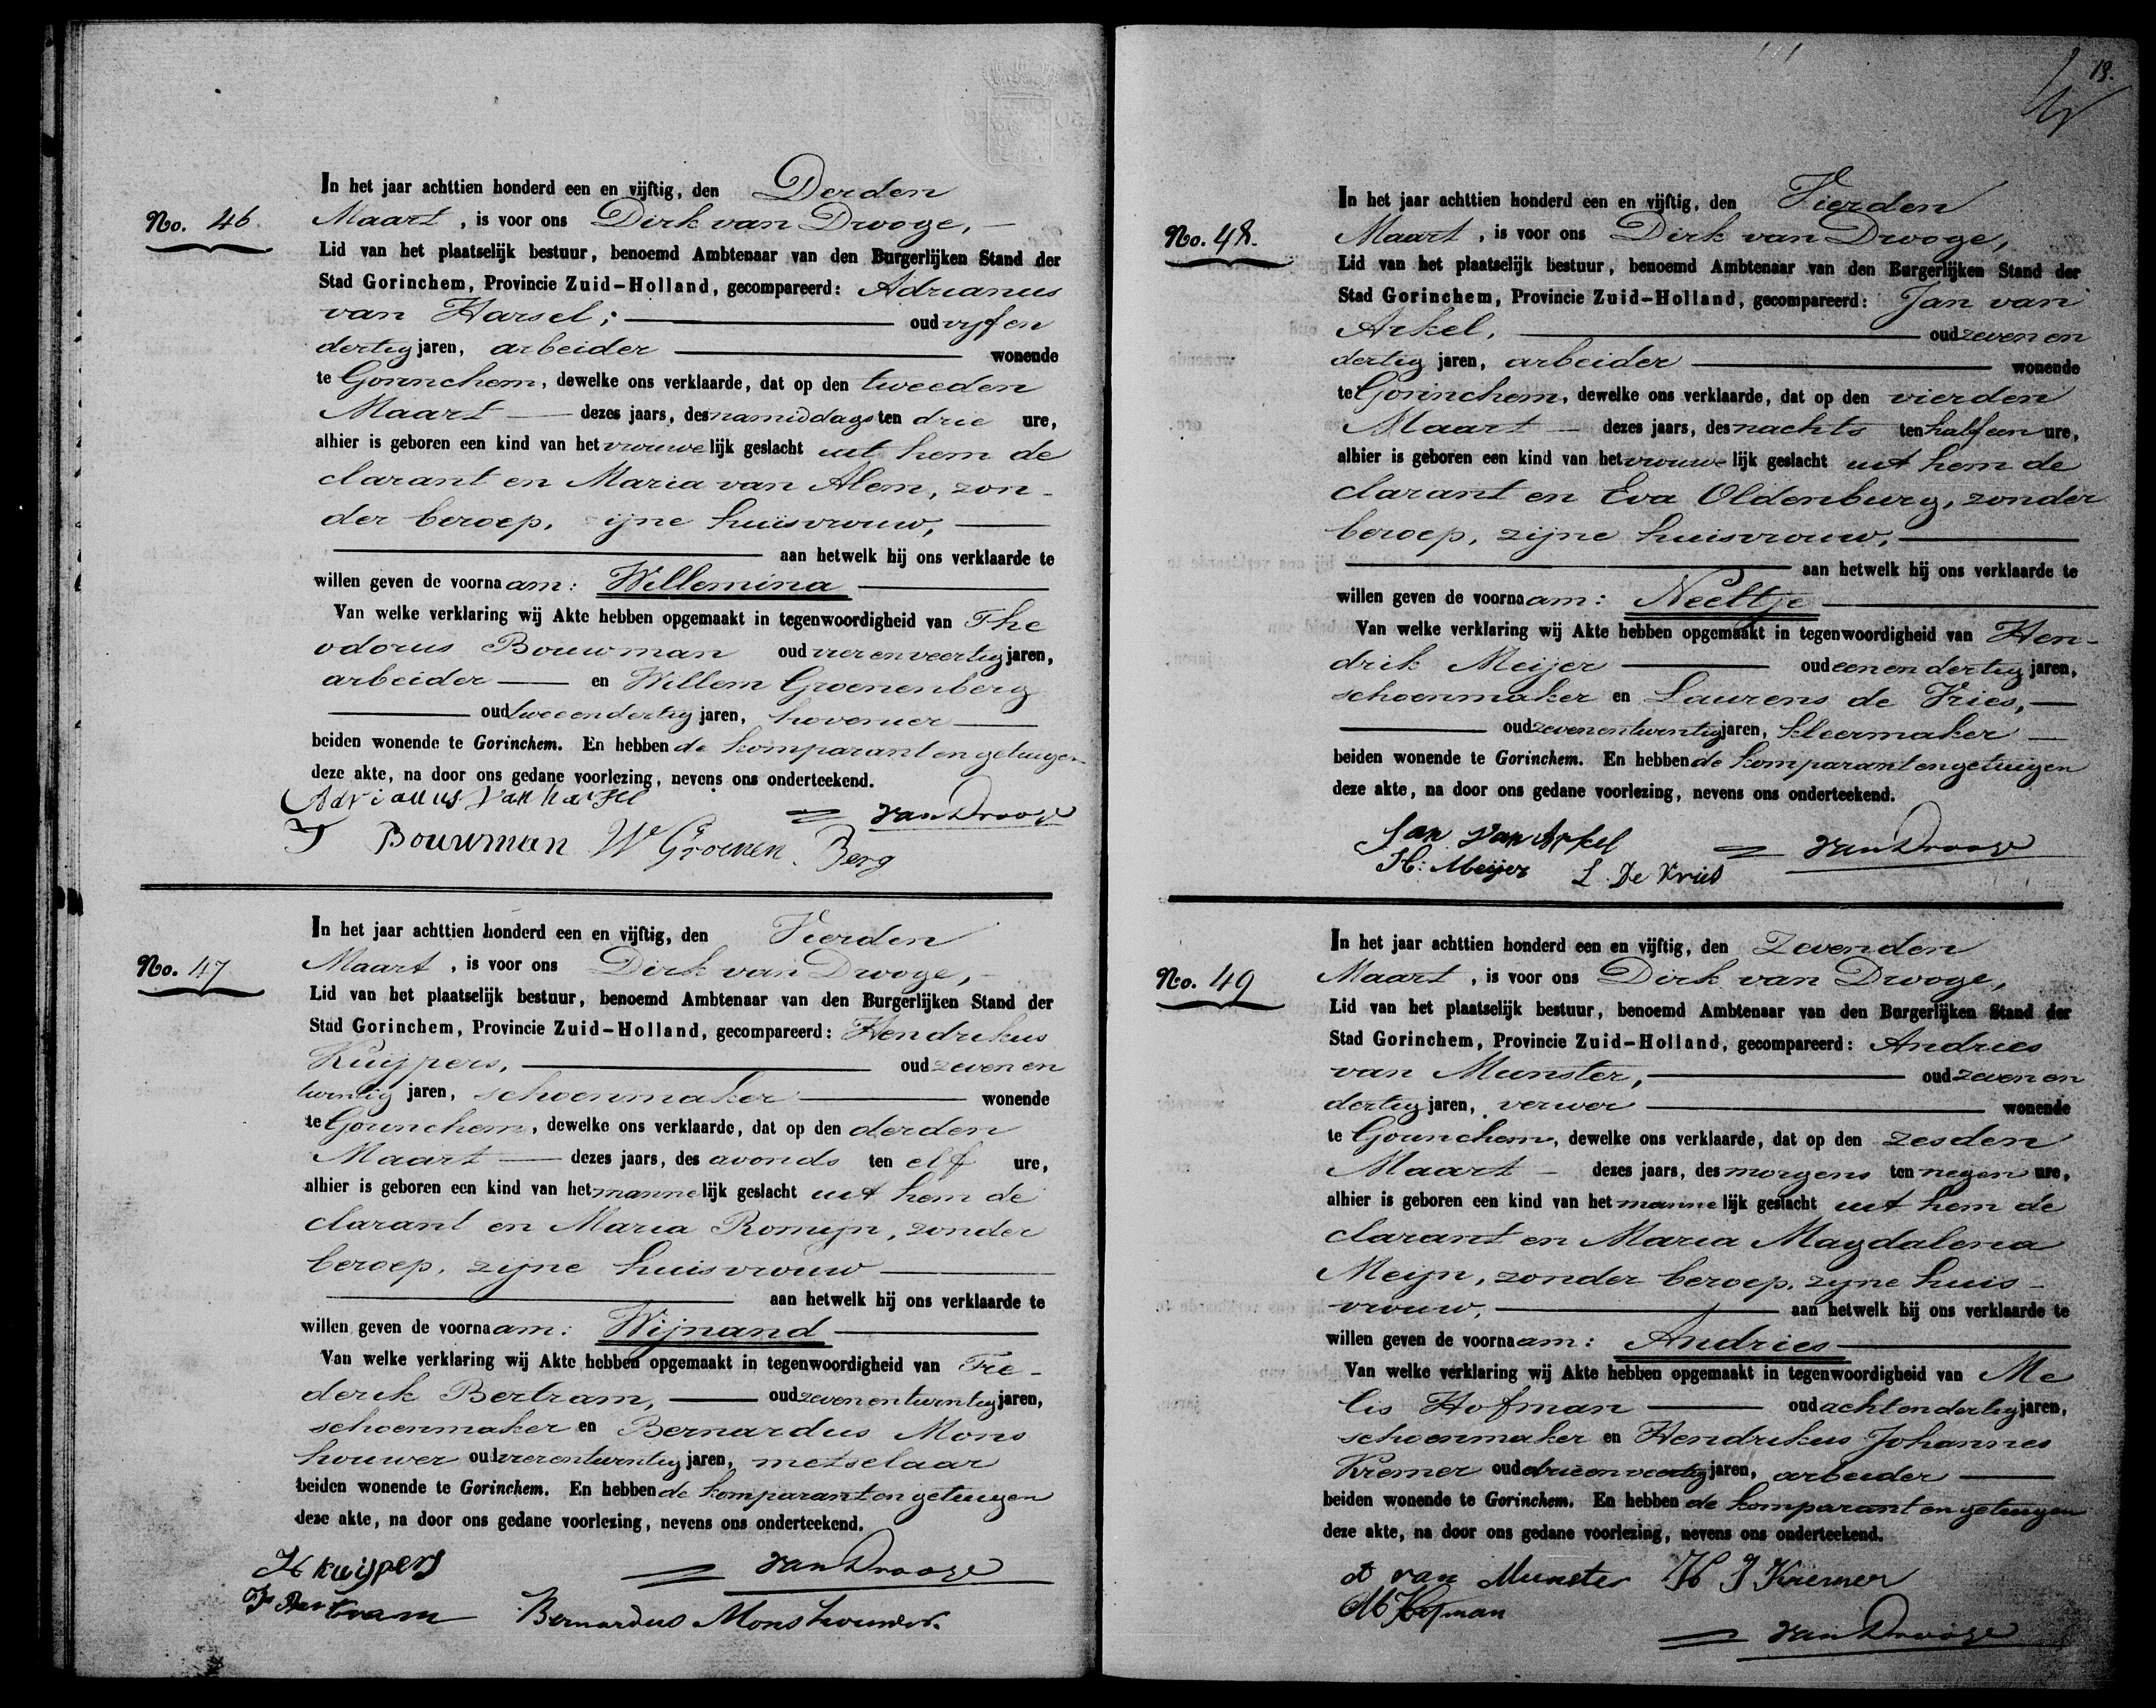 In het jaar achttien honderd een en vijftig, den Derden
No. 46. Maart, is voor ons Dirk van Drooge, —
Lid van het plaatselijk bestuur, benoemd Ambtenaar van den Burgerlijken Stand der
Stad Gorinchem, Provincie Zuid-Holland, gecompareerd: Adrianus
van Harsel; — oud vyf en
dertig jaren, arbeider — wonende
te Gorinchem, dewelke ons verklaarde, dat op den tweeden
Maart — dezes jaars, des namiddags ten drie ure,
alhier is geboren een kind van het vrouwelijk geslacht uit hem de
clarant en Maria van Alem, zon-
der beroep, zijne huisvrouw, —
— aan hetwelk hij ons verklaarde te
willen geven de voornaam: Willemina —
Van welke verklaring wij Akte hebben opgemaakt in tegenwoordigheid van The
odorus Bouwman oud vier en veertig jaren,
arbeider — en Willem Groenenberg
— oud twee en dertig jaren, hovenier —
beiden wonende te Gorinchem. En hebben de komparant en getuigen
deze akte, na door ons gedane voorlezing, nevens ons onderteekend.
Adrianus van harsel
van Drooge
T Bouwman W Groenen Berg
In het jaar achttien honderd een en vijftig, den Vierden
No. 47 Maart, is voor ons Dirk van Drooge, —
Lid van het plaatselijk bestuur, benoemd Ambtenaar van den Burgerlijken Stand der
Stad Gorinchem, Provincie Zuid-Holland, gecompareerd: Hendrikus
Kuijpers, — oud zeven en
twintig jaren, schoenmaker — wonende
te Gorinchem, dewelke ons verklaarde, dat op den derden
Maart — dezes jaars, des avonds ten elf ure,
alhier is geboren een kind van het mannelijk geslacht uit hem de
clarant en Maria Romijn, zonder
beroep, zijne huisvrouw —
— aan hetwelk hij ons verklaarde te
willen geven de voornaam: Wijnand —
Van welke verklaring wij Akte hebben opgemaakt in tegenwoordigheid van Fre-
derik Bertram, — oud zeven en twintig jaren,
schoenmaker en Bernardus Mons
houwer oud vier en twintig jaren, metselaar
beiden wonende te Gorinchem. En hebben de komparant en getuigen
deze akte, na door ons gedane voorlezing, nevens ons onderteekend.
H kuijpers van Drooge
F Bertram Bernardus Monshouwer.
19.
In het jaar achttien honderd een en vijftig, den Vierden
No. 48. Maart, is voor ons Dirk van Drooge,
Lid van het plaatselijk bestuur, benoemd Ambtenaar van den Burgerlijken Stand der
Stad Gorinchem, Provincie Zuid-Holland, gecompareerd: Jan van
Arkel, — oud zeven en
dertig jaren, arbeider — wonende
te Gorinchem, dewelke ons verklaarde, dat op den vierden
Maart — dezes jaars, des nachts ten half een ure,
alhier is geboren een kind van het vrouwelijk geslacht uit hem de
clarant en Eva Oldenburg, zonder
beroep, zijne huisvrouw, —
— aan hetwelk hij ons verklaarde te
willen geven de voornaam: Neeltje —
Van welke verklaring wij Akte hebben opgemaakt in tegenwoordigheid van Hen-
drik Meijer — oud een en dertig jaren,
schoenmaker en Laurens de Vries, —
— oud zeven en twintig jaren, kleermaker —
beiden wonende te Gorinchem. En hebben de komparant en getuigen
deze akte, na door ons gedane voorlezing, nevens ons onderteekend.
Jan van Arkel van Drooge
H: Meijer L. De Vries
In het jaar achttien honderd een en vijftig, den Zevenden
No. 49 Maart, is voor ons Dirk van Drooge,
Lid van het plaatselijk bestuur, benoemd Ambtenaar van den Burgerlijken Stand der
Stad Gorinchem, Provincie Zuid-Holland, gecompareerd: Andries
van Munster, — oud zeven en
dertig jaren, verwer — wonende
te Gorinchem, dewelke ons verklaarde, dat op den zesden
Maart — dezes jaars, des morgens ten negen ure,
alhier is geboren een kind van het mannelijk geslacht uit hem de
clarant en Maria Magdalena
Meijn, zonder beroep, zijne huis-
vrouw, — aan hetwelk hij ons verklaarde te
willen geven de voornaam: Andries —
Van welke verklaring wij Akte hebben opgemaakt in tegenwoordigheid van Me
lis Hofman — oud acht en dertig jaren,
schoenmaker en Hendrikus Johannes
Kremer oud drie en veertig jaren, arbeider —
beiden wonende te Gorinchem. En hebben de komparant en getuigen
deze akte, na door ons gedane voorlezing, nevens ons onderteekend.
A van Munster H J Kremer
M Hofman
van Drooge